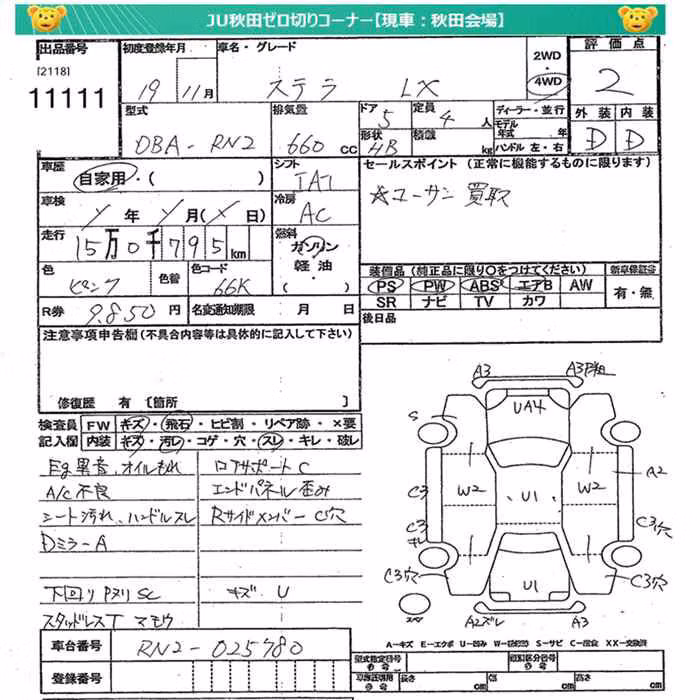 JU秋田ゼロ切りコーナー【現車：秋田会場】
出品番号
[2118]
11111
初度登録年月
19 11月
車名・グレード
ステラ LX
2WD・4WD
評価点
2
外装 内装
D D
型式
DBA-RN2
排気量
660 cc
ドア
5
定員
4人
形状
HB
積載
kg
ディーラー・並行
モデル年式 年
ハンドル 左・右
車歴
自家用・( )
シフト
車検
年 月( 日)
冷房
AC
走行
15万0千795km
燃料
ガソリン
軽油・
( )
色
ピンク
色替
色コード
66K
R券
9.850円
名変通知期限 月 日
セールスポイント (正常に機能するものに限ります)
☆ユーザー買取
装備品(純正品に限り○をつけてください)
新車保証書
PS PW ABS エアB AW
SR ナビ TV カワ
有・無
後日品
注意事項申告欄(不具合内容等は具体的に記入して下さい)
修復歴 有〔箇所 〕
検査員記入欄
FW キズ・飛石・ヒビ割・リペア跡・×要
内装 キズ・汚レ・コゲ・穴・スレ・キレ・破レ
Eg異音、オイルもれ
A/C不良
シート汚れ、ハンドルスレ
Dミラ-A
下回りPヌリ SC
スタッドレスT マモウ
コアサポートC
エンドパネル歪み
RサイドメンバーC穴
キズ U
A3
UA4
S
A2
W2
W2
U1
C3
C3
キレ
C3穴
C3穴
C3穴
U1
A2ズレ
A3
A-キズ E-エクボ U-凹み S-サビ C-腐食 XX-交換済
車台番号
RN2-025780
登録番号
型式指定番号
類別区分番号
長さ cm
幅 cm
高さ cm